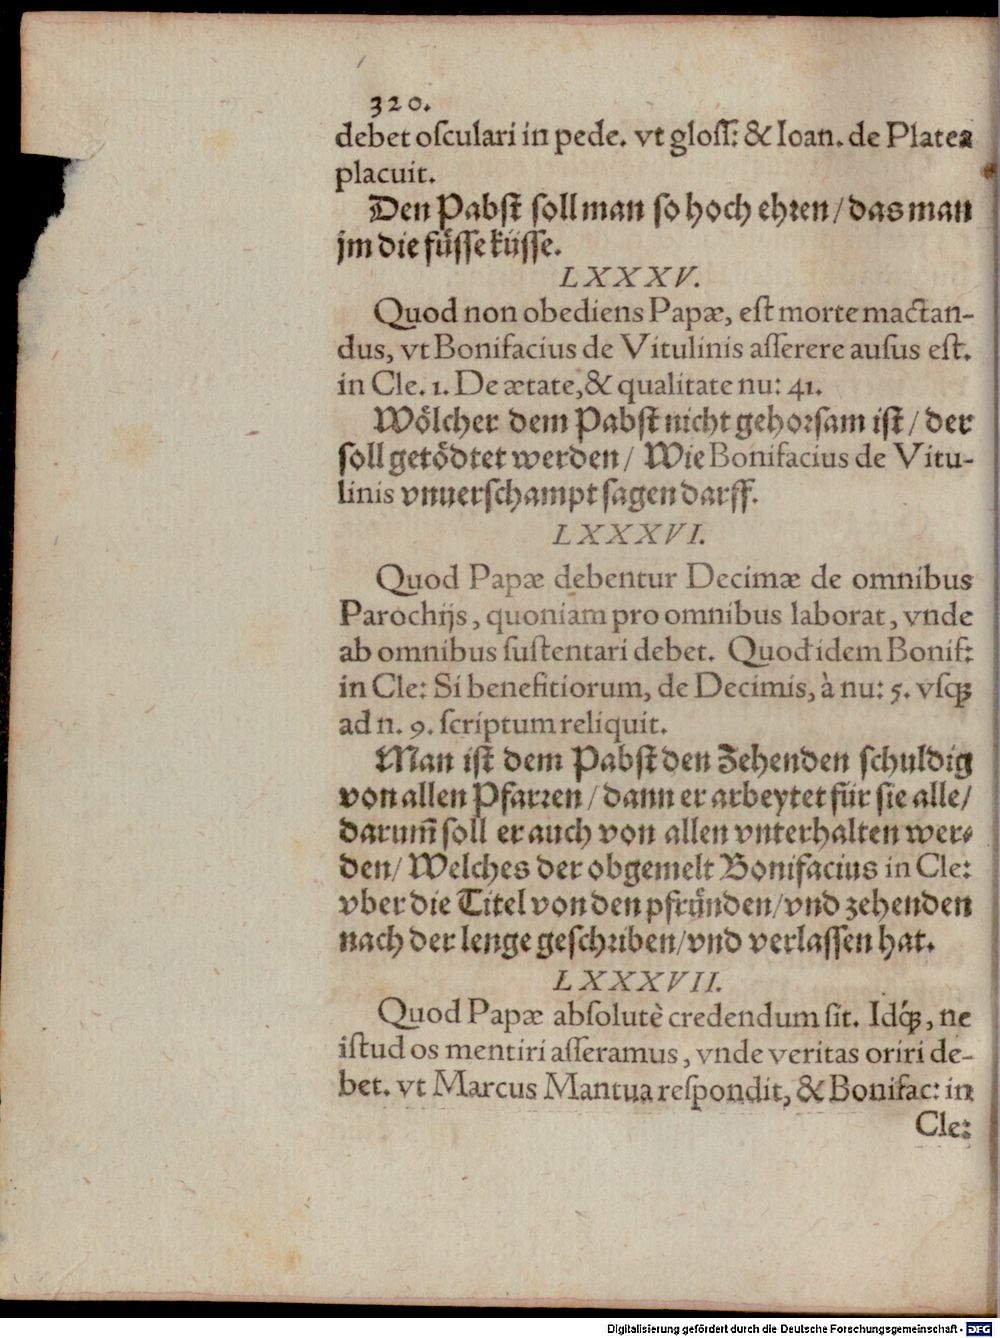 320.
debet oſculari in pede. vt gloſſ: & Ioan. de Platea
placuit.
Den Pabſt ſoll man ſo hoch ehren / das man
jm die fůſſe küſſe.
LXXXV.
Quod non obediens Papæ, eſt morte mactan-
dus, vt Bonifacius de Vitulinis aſſerere auſus eſt.
in Cle. 1. De ætate, & qualitate nu: 41.
Wőlcher dem Pabſt nicht gehorſam iſt / der
ſoll getődtet werden / Wie Bonifacius de Vitu-
linis vnuerſchampt ſagen darff.
LXXXVI.
Quod Papæ debentur Decimæ de omnibus
Parochijs, quoniam pro omnibus laborat, vnde
ab omnibus ſuſtentari debet. Quod idem Bonif:
in Cle: Si benefitiorum, de Decimis, à nu: 5. vſq́;
ad n. 9. ſcriptum reliquit.
Man iſt dem Pabſt den Zehenden ſchuldig
von allen Pfarren / dann er arbeytet für ſie alle /
darum̃ ſoll er auch von allen vnterhalten wer⸗
den / Welches der obgemelt Bonifacius in Cle:
vber die Titel von den pfründen / vnd zehenden
nach der lenge geſchriben / vnd verlaſſen hat.
LXXXVII.
Quod Papæ abſolutè credendum ſit. Idq́;, ne
iſtud os mentiri aſſeramus, vnde veritas oriri de-
bet. vt Marcus Mantua reſpondit, & Bonifac: in
Cle:
Digitalisierung gefördert durch die Deutsche Forschungsgemeinschaft - DFG